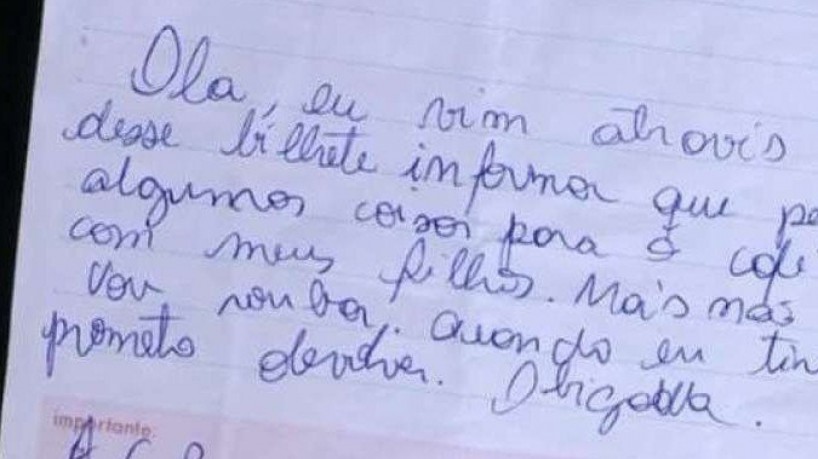 Ola, eu vim através
desse bilhete informar que pe
algumas coisas para o cafe
com meus filhos. Mais não
vou roubar. Quando eu tin
prometo devolver. Obigada.
importante: